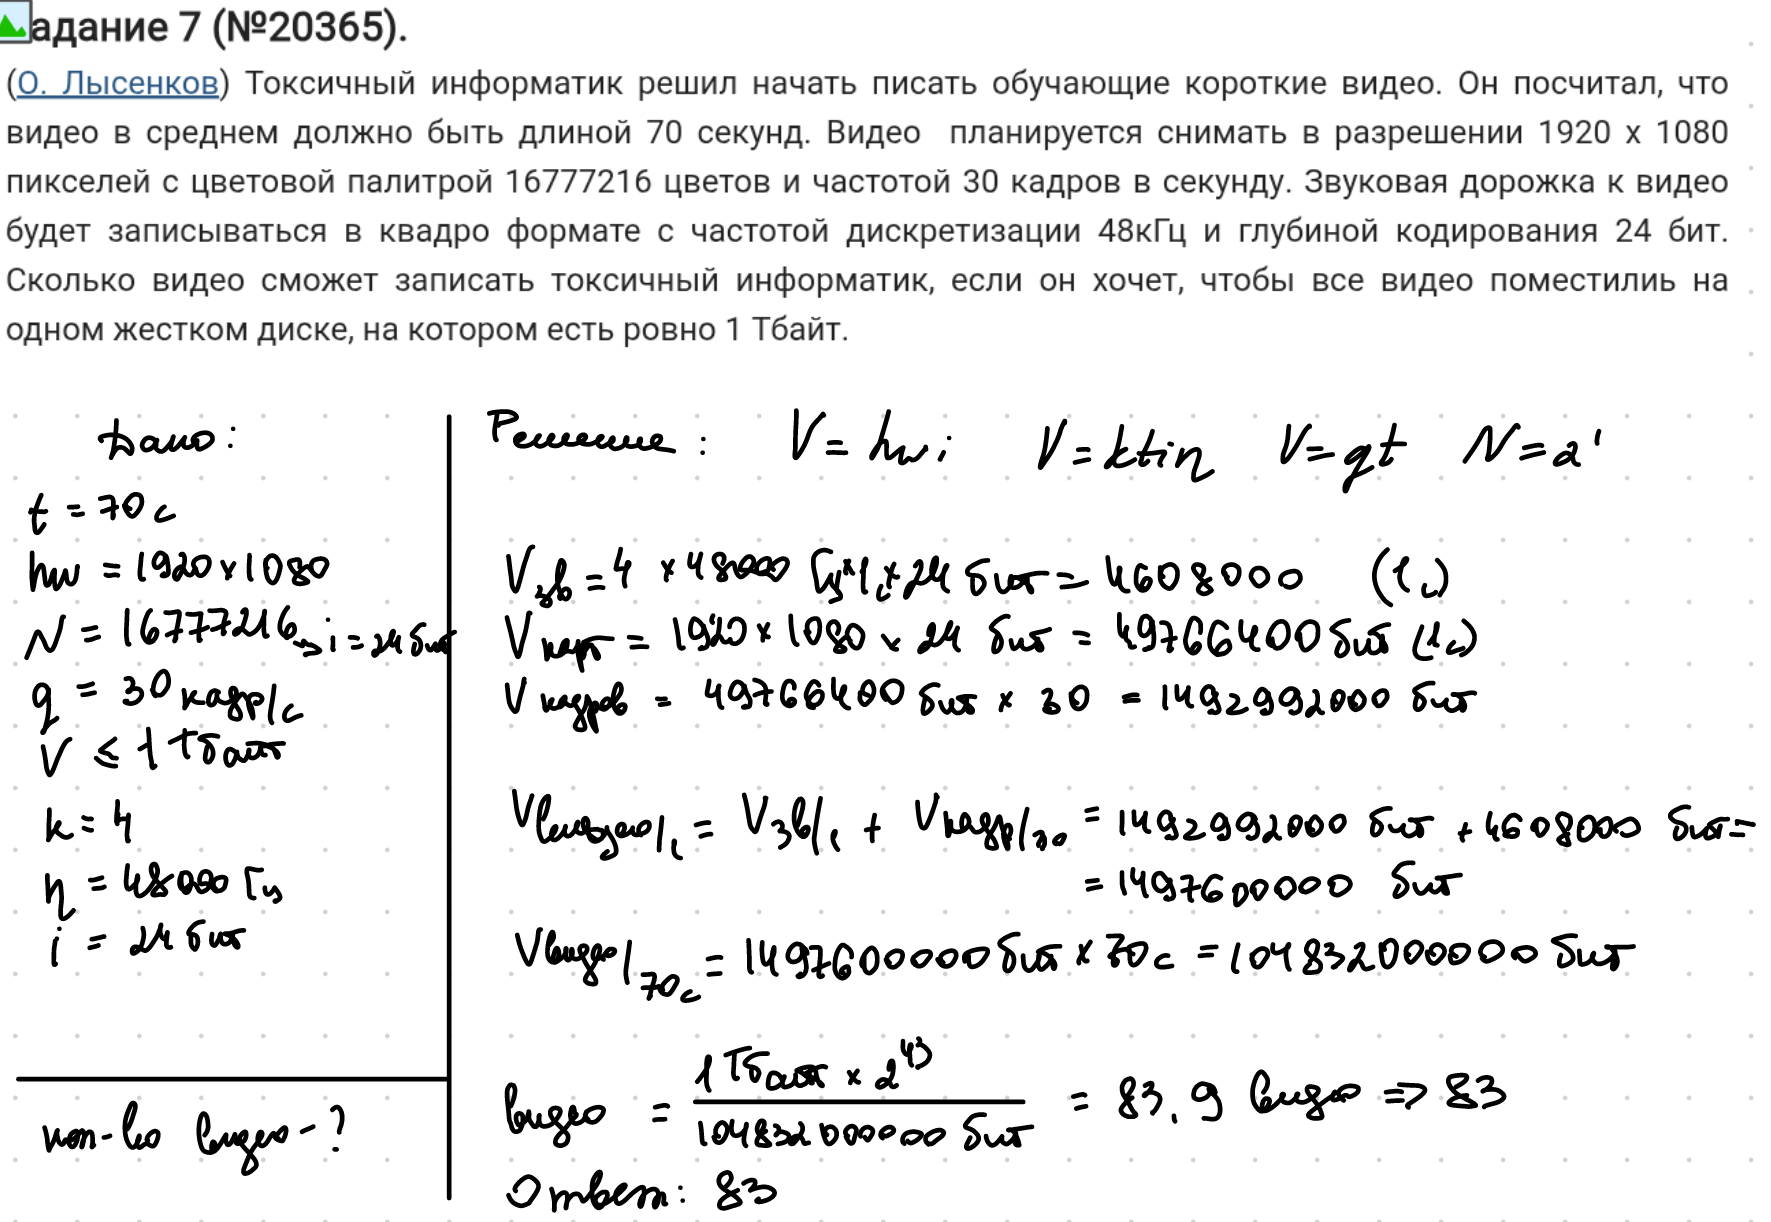 адание 7 (№20365).
(О. Лысенков) Токсичный информатик решил начать писать обучающие короткие видео. Он посчитал, что
видео в среднем должно быть длиной 70 секунд. Видео планируется снимать в разрешении 1920 x 1080
пикселей с цветовой палитрой 16777216 цветов и частотой 30 кадров в секунду. Звуковая дорожка к видео
будет записываться в квадро формате с частотой дискретизации 48кГц и глубиной кодирования 24 бит.
Сколько видео сможет записать токсичный информатик, если он хочет, чтобы все видео поместилиь на
одном жестком диске, на котором есть ровно 1 Тбайт.
Дано:
t = 70 с
hw = 1920 x 1080
N = 16777216 → i = 24 бит
q = 30 кадр/с
V ≤ 1 Тбайт
k = 4
η = 48000 Гц
i = 24 бит
кол-во видео - ?
Решение: V = hwi V = ktiη V = qt N = 2^i
Vзв = 4 × 48000 Гц × 1с × 24 бит = 4608000 (1с)
Vкарт = 1920 × 1080 × 24 бит = 49766400 бит (1с)
Vкадров = 49766400 бит × 30 = 1492992000 бит
Vвидео/с = Vзв/с + Vкадр/30 = 1492992000 бит + 4608000 бит =
= 1497600000 бит
Vвидео/70с = 1497600000 бит × 70с = 104832000000 бит
видео = 1 Тбайт × 2^43 / 104832000000 бит = 83,9 видео => 83
Ответ: 83